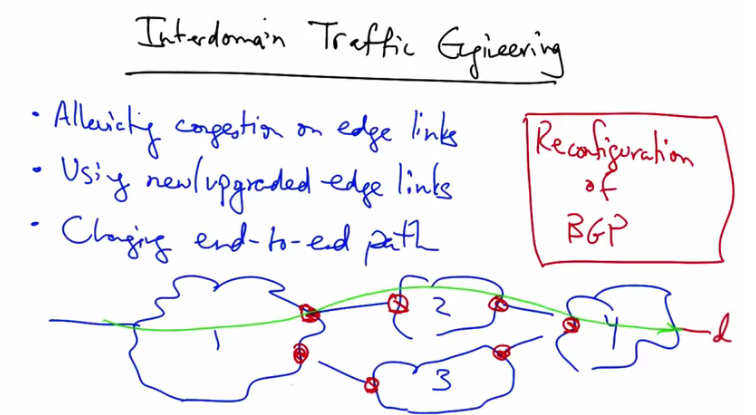 Interdomain Traffic Engineering
• Alleviating congestion on edge links
• Using new/upgraded edge links
• Changing end-to-end path
Reconfiguration
of
BGP
1
2
3
4
d